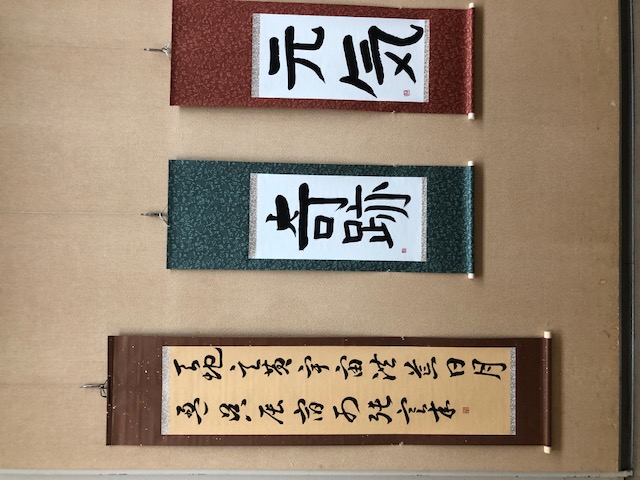 元気
奇跡
天地玄黄宇宙洪荒日月
盈昃辰宿列張寒来